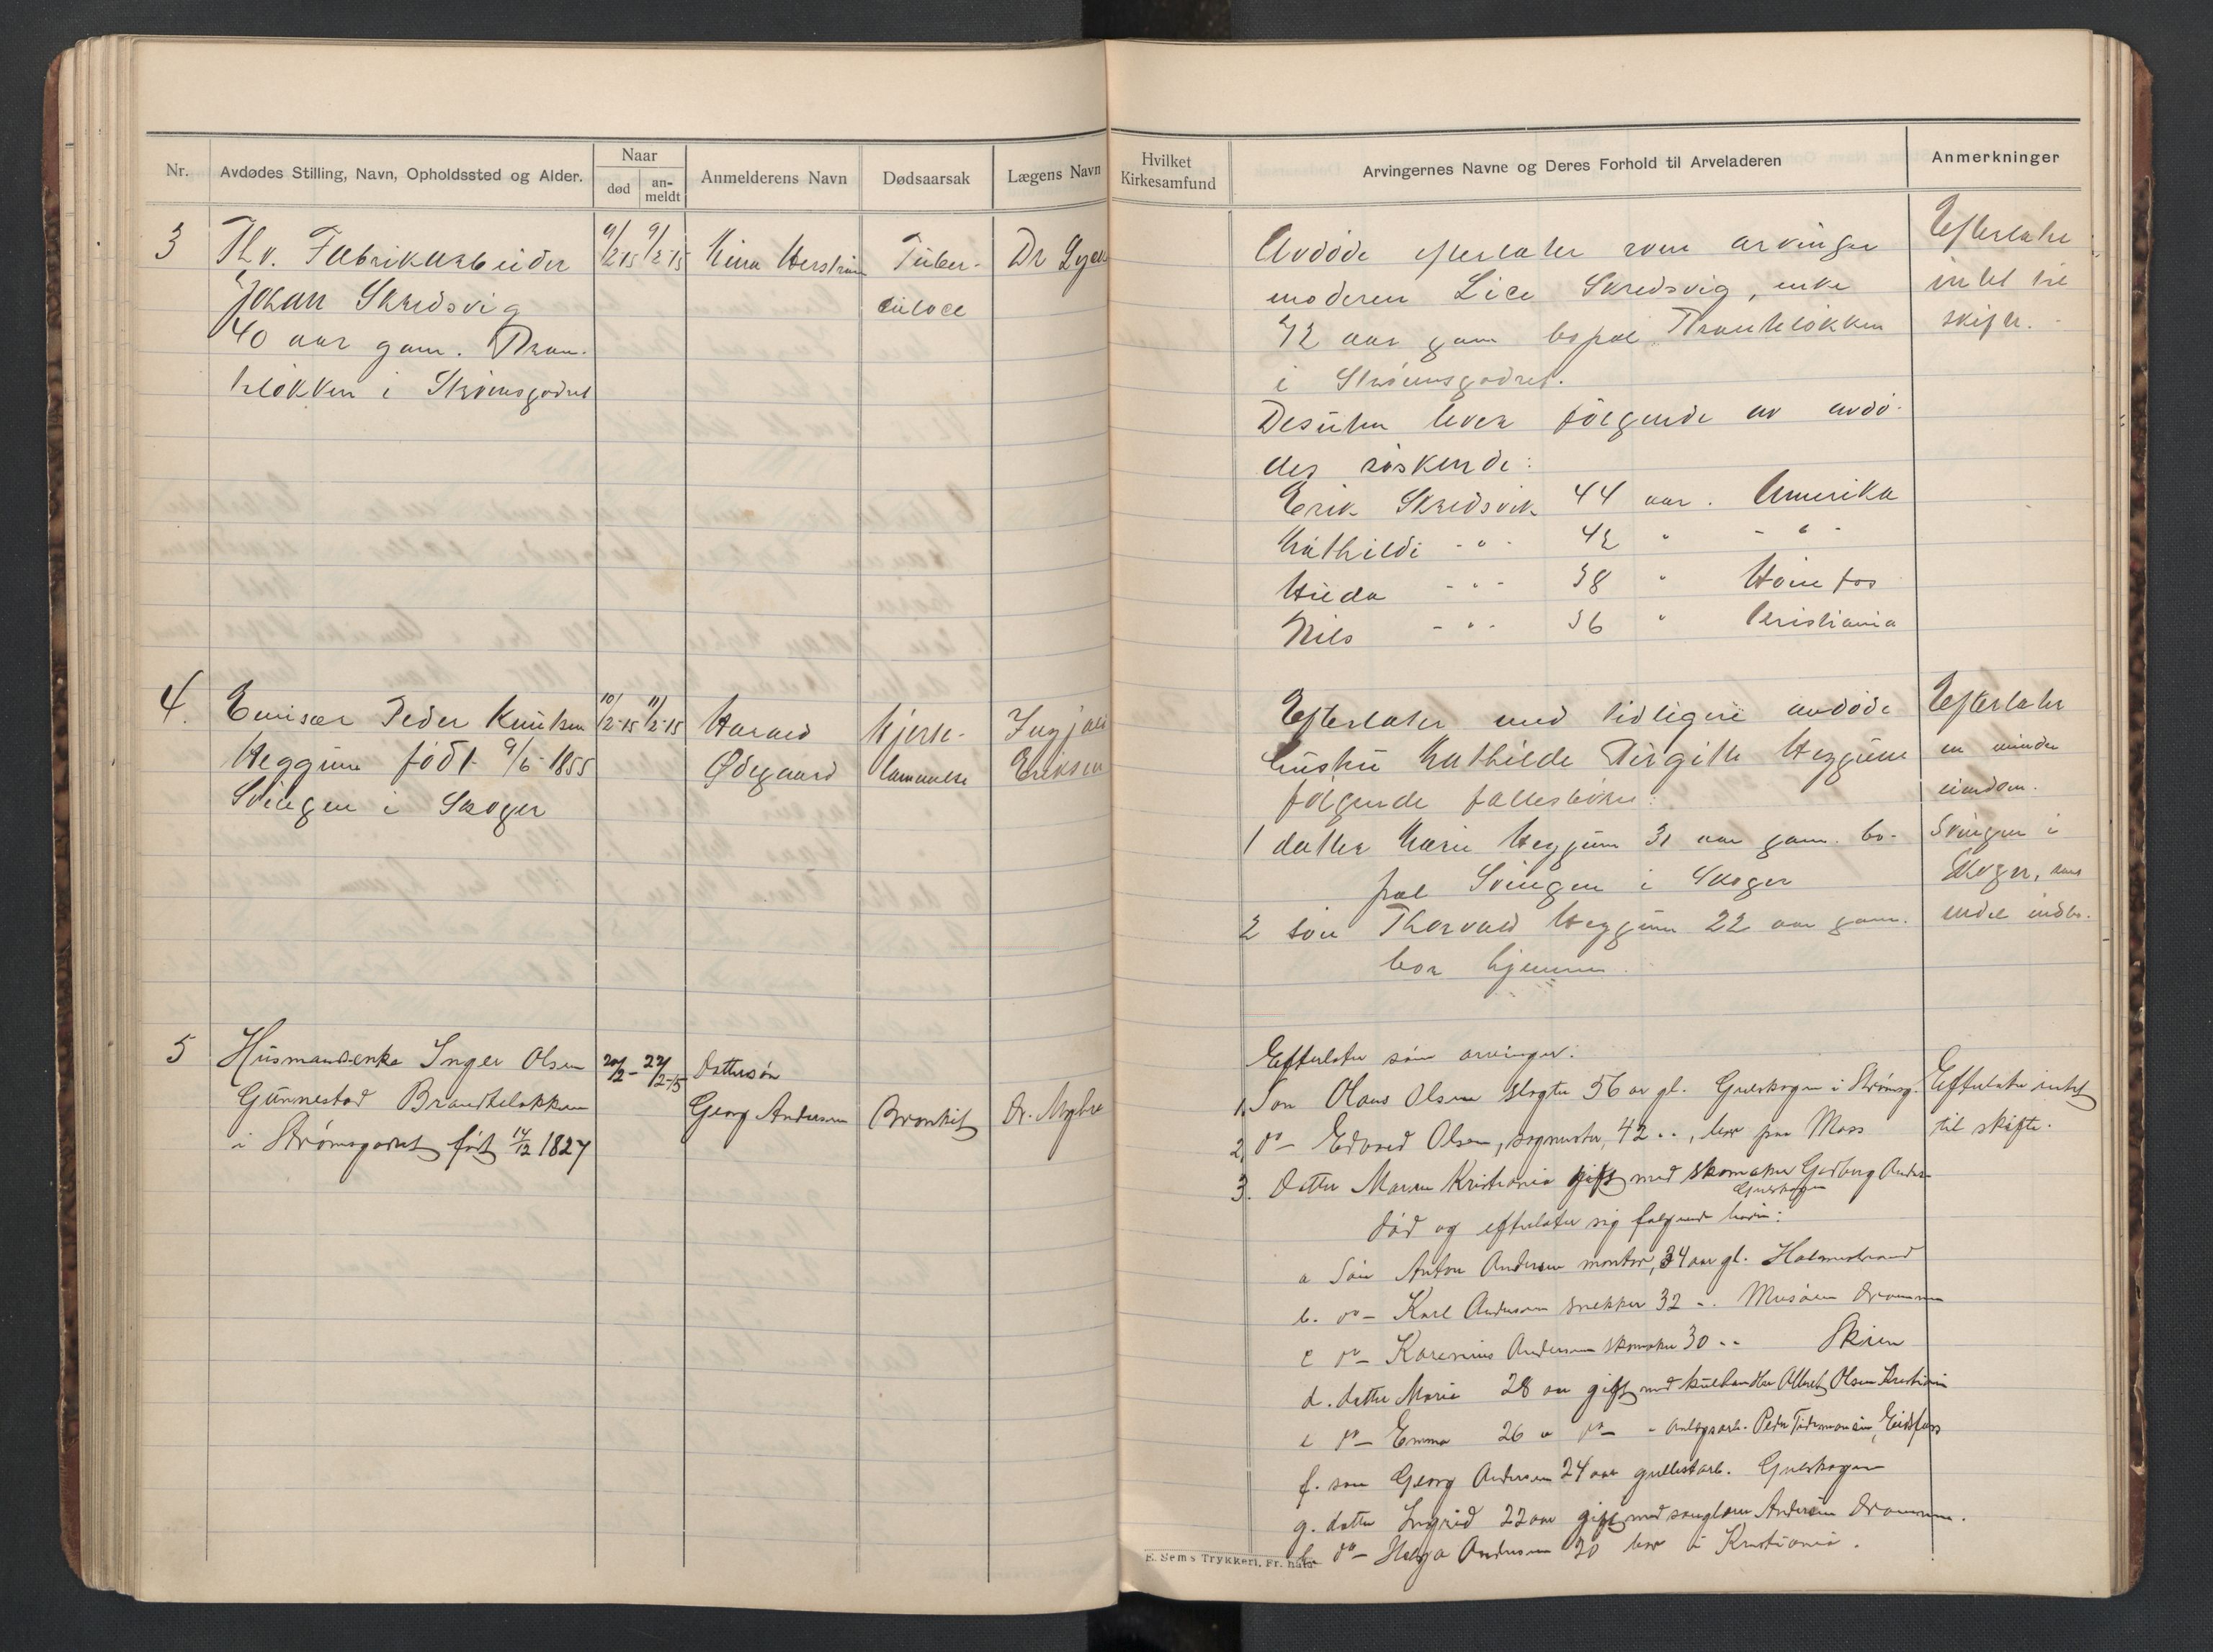 Nr.
Avdødes Stilling, Navn, Opholdssted og Alder.
Naar
død
an-
meldt
Anmelderens Navn
Dødsaarsak
Lægens Navn
3
Fhv. Fabrikarbeider
Johan Skredsvig
40 aar gam. Bran-
teløkken i Strømsgodset
9/2-15
9/2-15
Tuber-
culose
Dr
4.
Emisær Peder Knutsen
Heggum født 9/6-1855
Svingen i Skoger
10/2-15
11/2-15
Harald
Ødegaard
Hjerte-
lammelse
Ingjald
Eriksen
5
Husmandsenke Inger Olsen
Gunnestad Brandteløkken
i Strømsgodset født 14/12 1827
20/2-
22/2-15
Dattersøn
Georg Andersen
Bronkit
Dr. Myhre
Hvilket
Kirkesamfund
Arvingernes Navne og Deres Forhold til Arveladeren
Anmerkninger
Avdøde efterlater som arvinger
moderen Lise Skredsvig, enke
72 aar gam bopæl Branteløkken
i Strømsgodset.
Desuten lever følgende av avdø-
des søskende:
Erik Skredsvik 44 aar. Amerika
Mathilde - " - 42 " - " -
Hilda - " - 38 " Hønefos
Nils - " - 36 " Kristiania
Efterlater
intet til
skifte.
Efterlater med tidligere avdøde
hustru Mathilde Birgitte Heggum
følgende fællesbørn:
1 datter Marie Heggum 31 aar gam. bo-
pæl Svingen i Skoger
2 søn Thorvald Heggum 22 aar gam.
bor hjemme.
Efterlater
en mindre
eiendom.
Svingen i
Skoger, samt
endel indbo.
Efterlater som arvinger:
1. Søn Olaus Olsen slagter 56 aar gl. Gulskogen i Strømsg.
2, do - Edvard Olsen, , 42 " ", bor paa Moss
3. Datter Maren Kristiania gift med skomaker Andersen
Gulskogen
død og efterlater sig følgende børn:
a Søn Anton Andersen montør, 34 aar gl. Holmestrand
b. do - Karl Andersen snekker 32 " . Drammen
c do - Karenius Andersen skomaker 30 " " Skien
d. datter Marie 28 aar gift med kulhandler Albert Olsen Kristiania
e do - Emma 26 " do - " Peder Eidsfoss
f. søn Georg Andersen 24 aar Gulskogen
g. datter Ingrid 22 aar gift med Andersen Drammen.
h. do - Helga Andersen 20 bor i Kristiania.
Efterlater intet
til skifte.
E. Sems Trykkeri, Fr.hald.